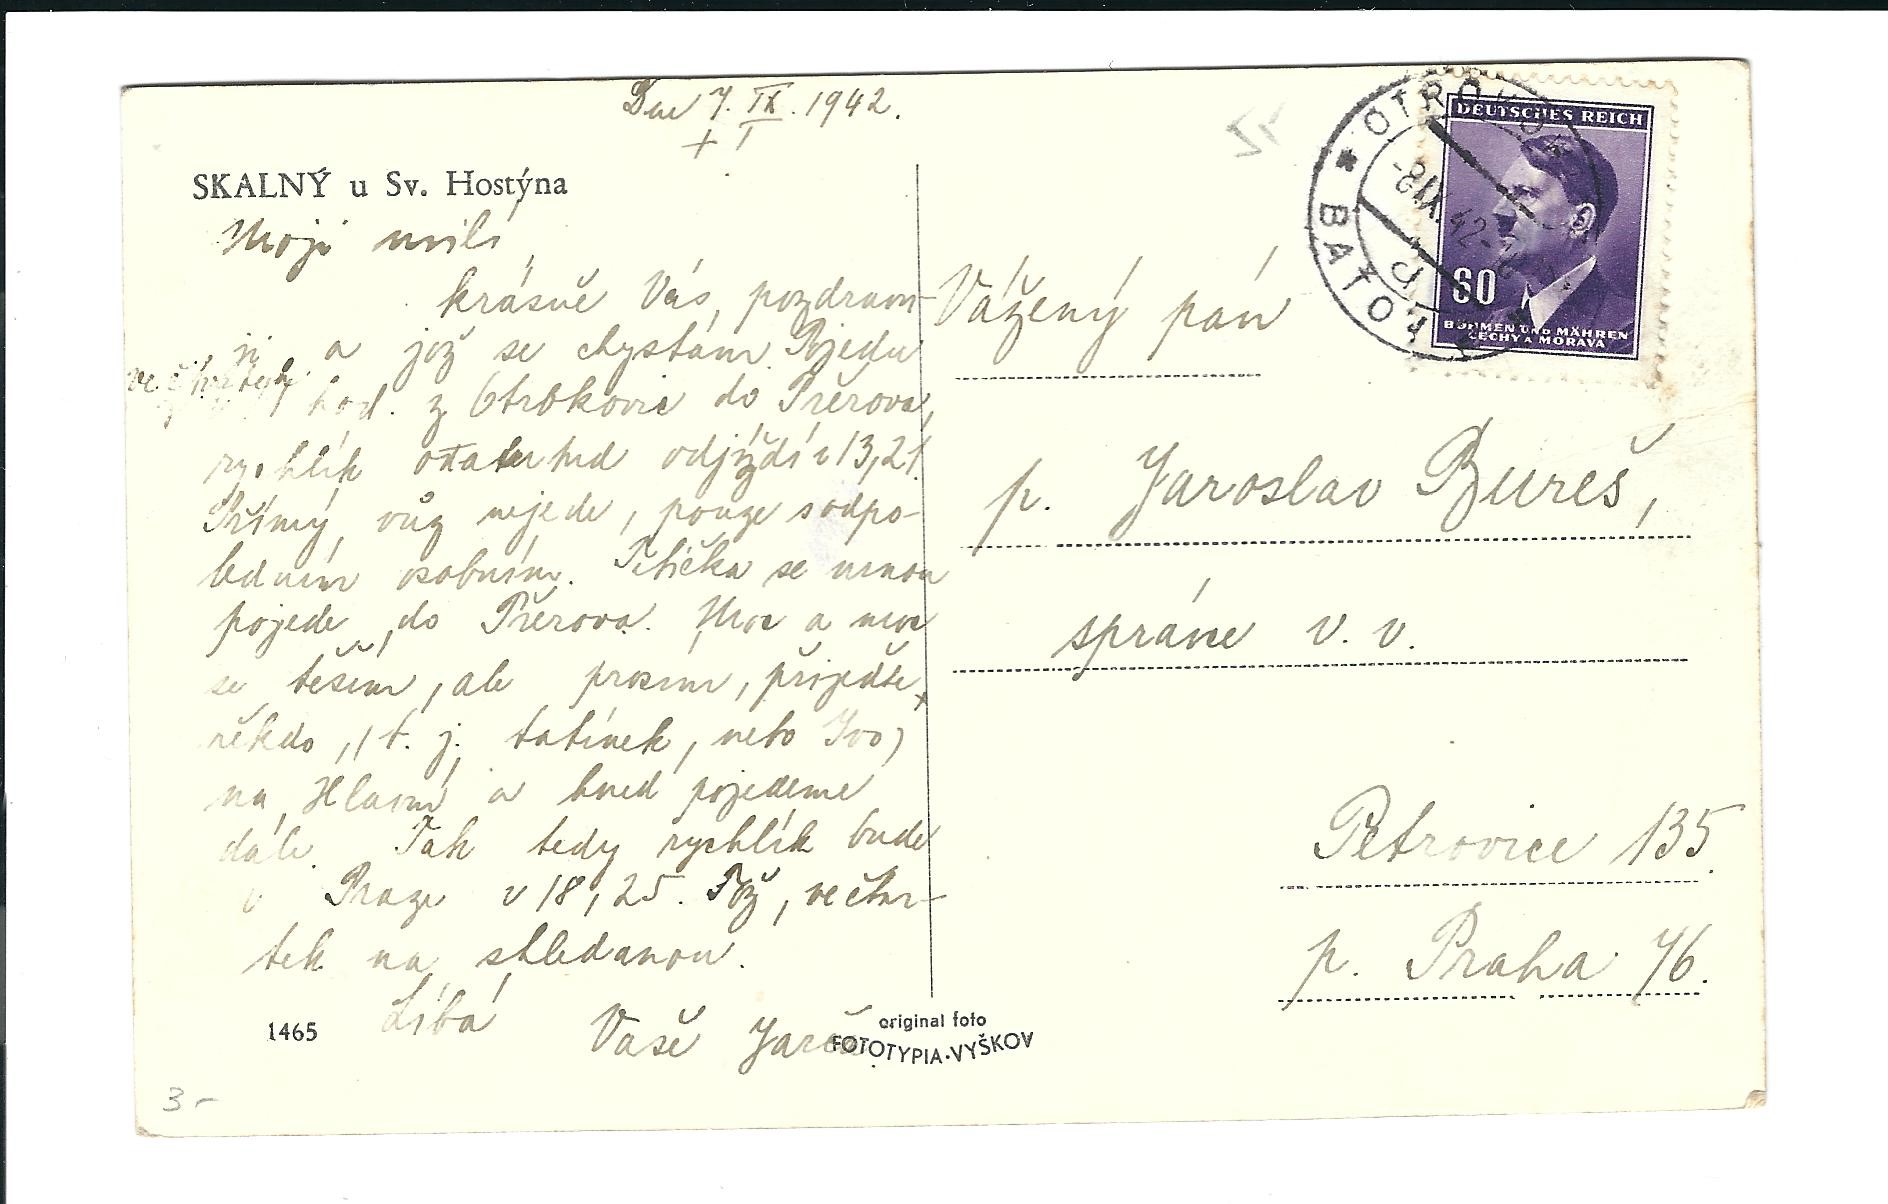 Dne 7. IX. 1942.
SKALNÝ u Sv. Hostýna
Moji milí,
krásně Vás pozdravu-
ji a již se chystám. Pojedu
ve čtvrtek
hod. z Otrokovic do Přerova,
rychlík odjíždí v 13,21.
Přímý vůz nejede, pouze s odpo-
ledním osobním. Tetička se mnou
pojede do Přerova. Moc a moc
se těším, ale prosím, přijeďte
někdo, (t. j. tatínek, nebo Ivo)
na Hlavní a hned pojedeme
dále. Tak tedy rychlík bude
v Praze v 18,25. Tož, ve čtvr-
tek na shledanou.
Líbá Vaše
1465
original foto
FOTOTYPIA-VYŠKOV
3-
DEUTSCHES REICH
60
BÖHMEN UND MÄHREN
ČECHY A MORAVA
OTROKOV
BAŤOV
-8.IX.42-
Vážený pán
p. Jaroslav Bureš,
správce v. v.
Petrovice 135.
p. Praha 76.